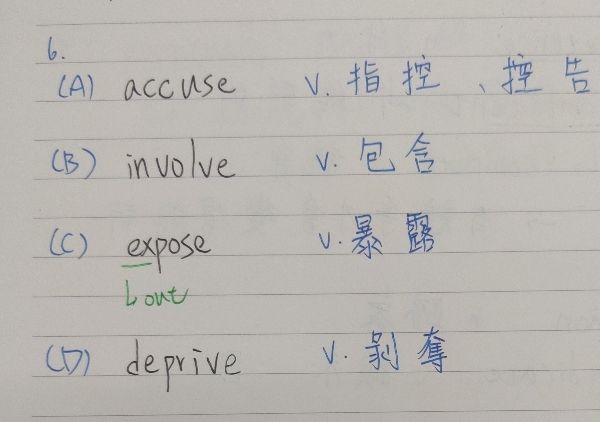 6.
(A) accuse v. 指控、控告
(B) involve v. 包含
(C) expose v. 暴露
out
(D) deprive v. 剝奪